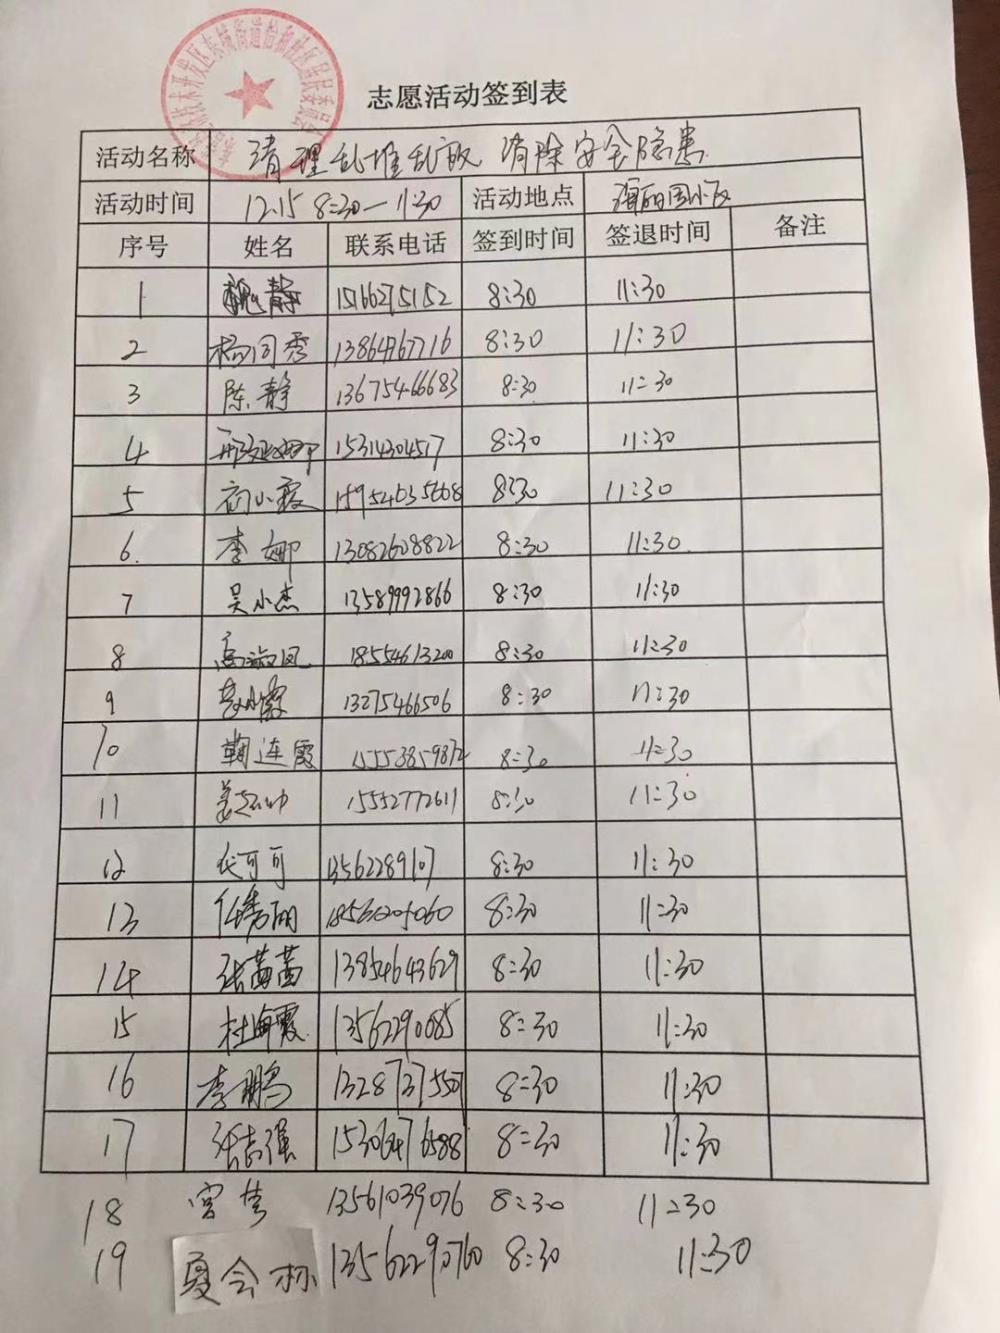 志愿活动签到表
活动名称 清理乱堆乱放 消除安全隐患
活动时间 12.15 8:30—11:30 活动地点
序号 姓名 联系电话 签到时间 签退时间 备注
1 魏静 15166275152 8:30 11:30
2 杨同秀 13864767716 8:30 11:30
3 陈静 13675466683 8:30 11:30
4 15314304517 8:30 11:30
5 初小霞 8:30 11:30
6. 李娜 13082608822 8:30 11:30
7 吴小杰 13589992866 8:30 11:30
8 高淑凤 18554613200 8:30 11:30
9 13275466506 8:30 11:30
10 鞠连霞 15553859872 8:30 11:30
11 15552772611 8:30 11:30
12 13562289107 8:30 11:30
13 任秀丽 8:30 11:30
14 张茜茜 13854643629 8:30 11:30
15 杜海霞 13562290085 8:30 11:30
16 李鹏 13287375507 8:30 11:30
17 张志强 15306476588 8:30 11:30
18 宫梦 13561039076 8:30 11:30
19 夏会林 13562290760 8:30 11:30